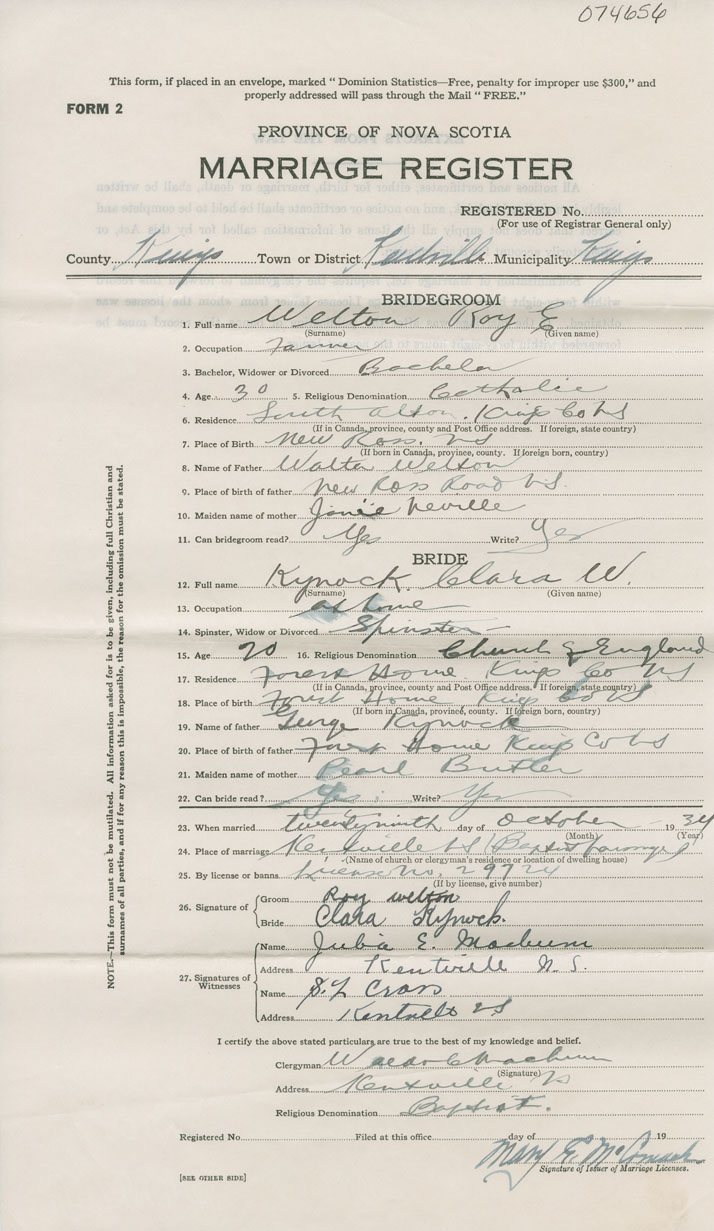 074656
This form, if placed in an envelope, marked " Dominion Statistics—Free, penalty for improper use $300," and
properly addressed will pass through the Mail " FREE."
FORM 2
PROVINCE OF NOVA SCOTIA
MARRIAGE REGISTER
REGISTERED No.
(For use of Registrar General only)
County Kings Town or District Kentville Municipality Kings
BRIDEGROOM
1. Full name Welton Roy E
(Surname) (Given name)
2. Occupation
3. Bachelor, Widower or Divorced Bachelor
4. Age 30 5. Religious Denomination Catholic
6. Residence South Alton, Kings Co NS
(If in Canada, province, county and Post Office address. If foreign, state country)
7. Place of Birth New Ross. NS
(If born in Canada, province, county. If foreign born, country)
8. Name of Father Walter Welton
9. Place of birth of father New Ross Road N.S.
10. Maiden name of mother Janie Neville
11. Can bridegroom read? Yes Write? Yes
BRIDE
12. Full name Kynock Clara W.
(Surname) (Given name)
13. Occupation at home
14. Spinster, Widow or Divorced Spinster
15. Age 20 16. Religious Denomination Church of England
17. Residence Forest Home Kings Co NS
(If in Canada, province, county and Post Office address. If foreign, state country)
18. Place of birth Forest Home Kings Co NS
(If born in Canada, province, county. If foreign born, country)
19. Name of father George Kynock
20. Place of birth of father Forest Home Kings Co NS
21. Maiden name of mother Pearl Butler
22. Can bride read? Yes Write? Yes
23. When married twenty ninth day of October 1934
(Month) (Year)
24. Place of marriage Kentville NS (Baptist Parsonage)
(Name of church or clergyman's residence or location of dwelling house)
25. By license or banns License No. 29724
(If by license, give number)
26. Signature of
Groom Roy welton
Bride Clara Kynock.
27. Signatures of Witnesses
Name Julia E. Machum
Address Kentville N. S.
Name S. L Cross
Address Kentville NS
I certify the above stated particulars are true to the best of my knowledge and belief.
Clergyman Machum
(Signature)
Address Kentville NS
Religious Denomination Baptist.
Registered No. Filed at this office day of 19
Mary E. McCormack
Signature of Issuer of Marriage Licenses.
[SEE OTHER SIDE]
NOTE.—This form must not be mutilated. All information asked for is to be given, including full Christian and
surnames of all parties, and if for any reason this is impossible, the reason for the omission must be stated.